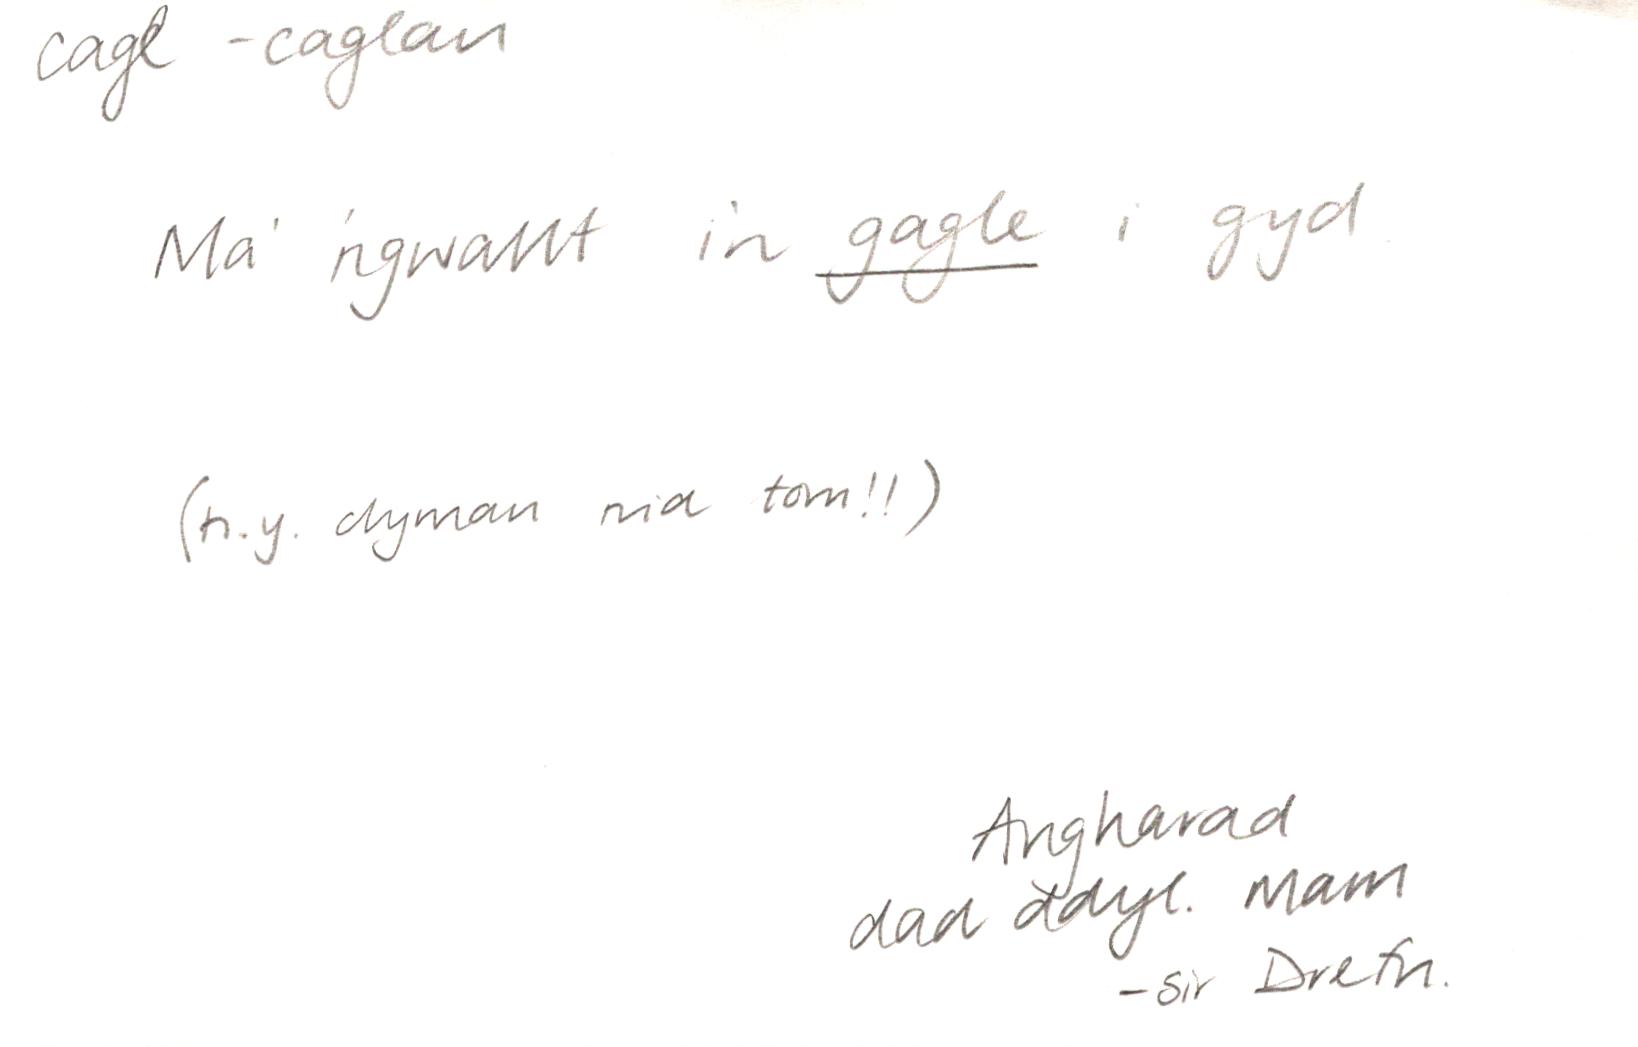 cagl - caglau
Ma' 'ngwallt i'n gagle i gyd
(h.y. clymau nid tom!!)
Angharad
dad ddyl. Mam
- Sir Drefn.